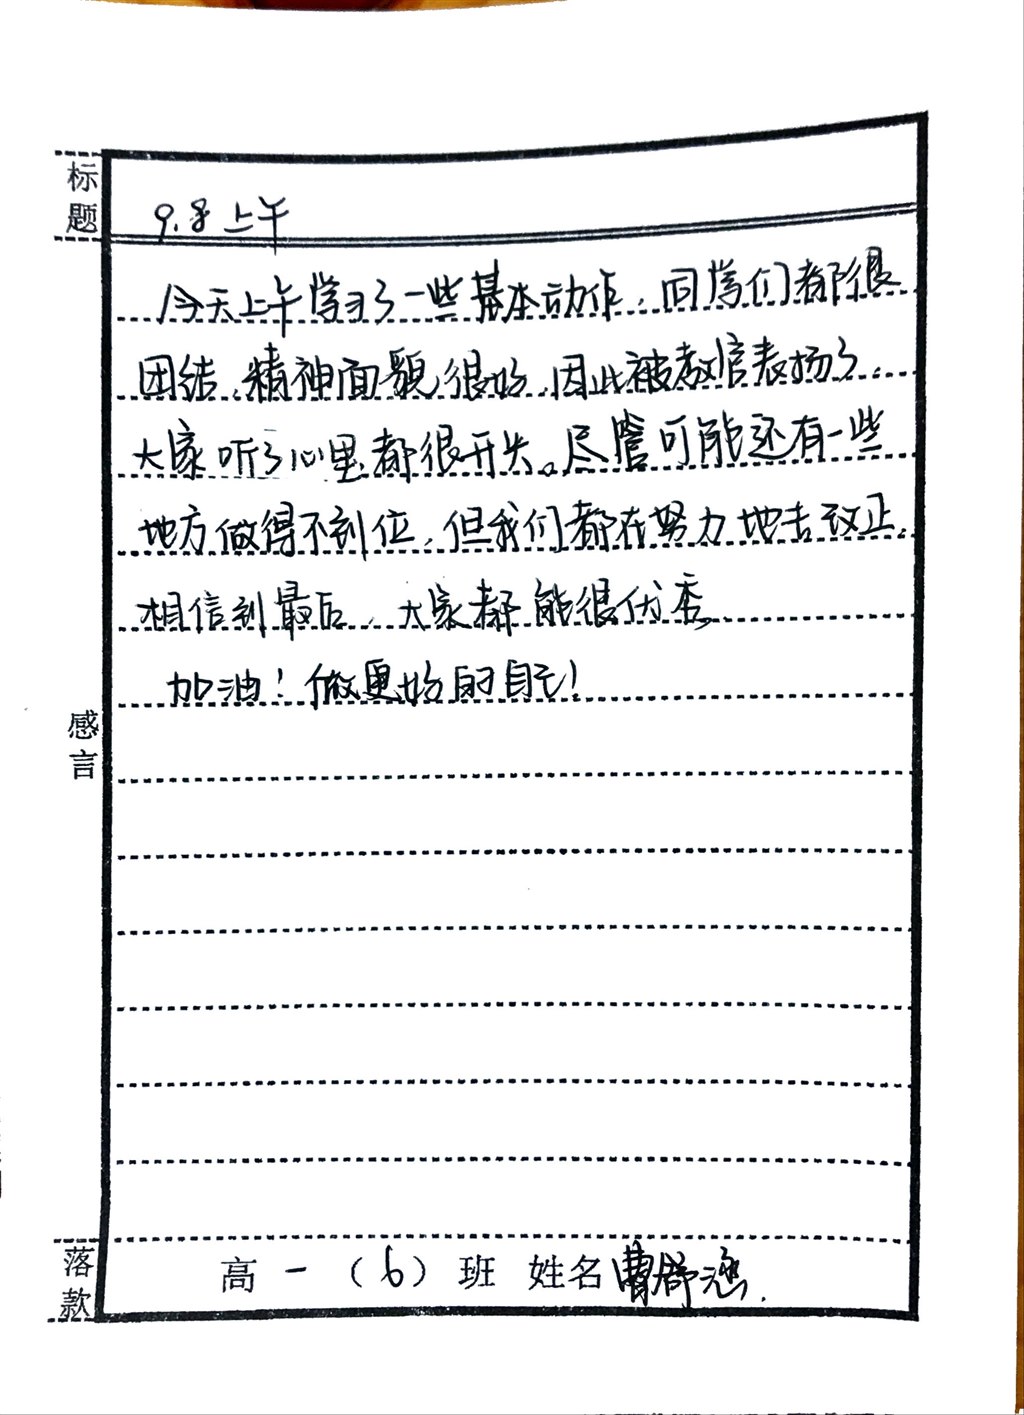 标题
9.8 上午
今天上午学习了一些基本动作，同学们都很
团结，精神面貌很好，因此被教官表扬了。
大家听了心里都很开失。尽管可能还有一些
地方做得不到位，但我们都在努力地去改正。
相信到最后，大家都能很优秀。
加油！做更好的自己！
感言
落款
高一（6）班 姓名曹舒涵.